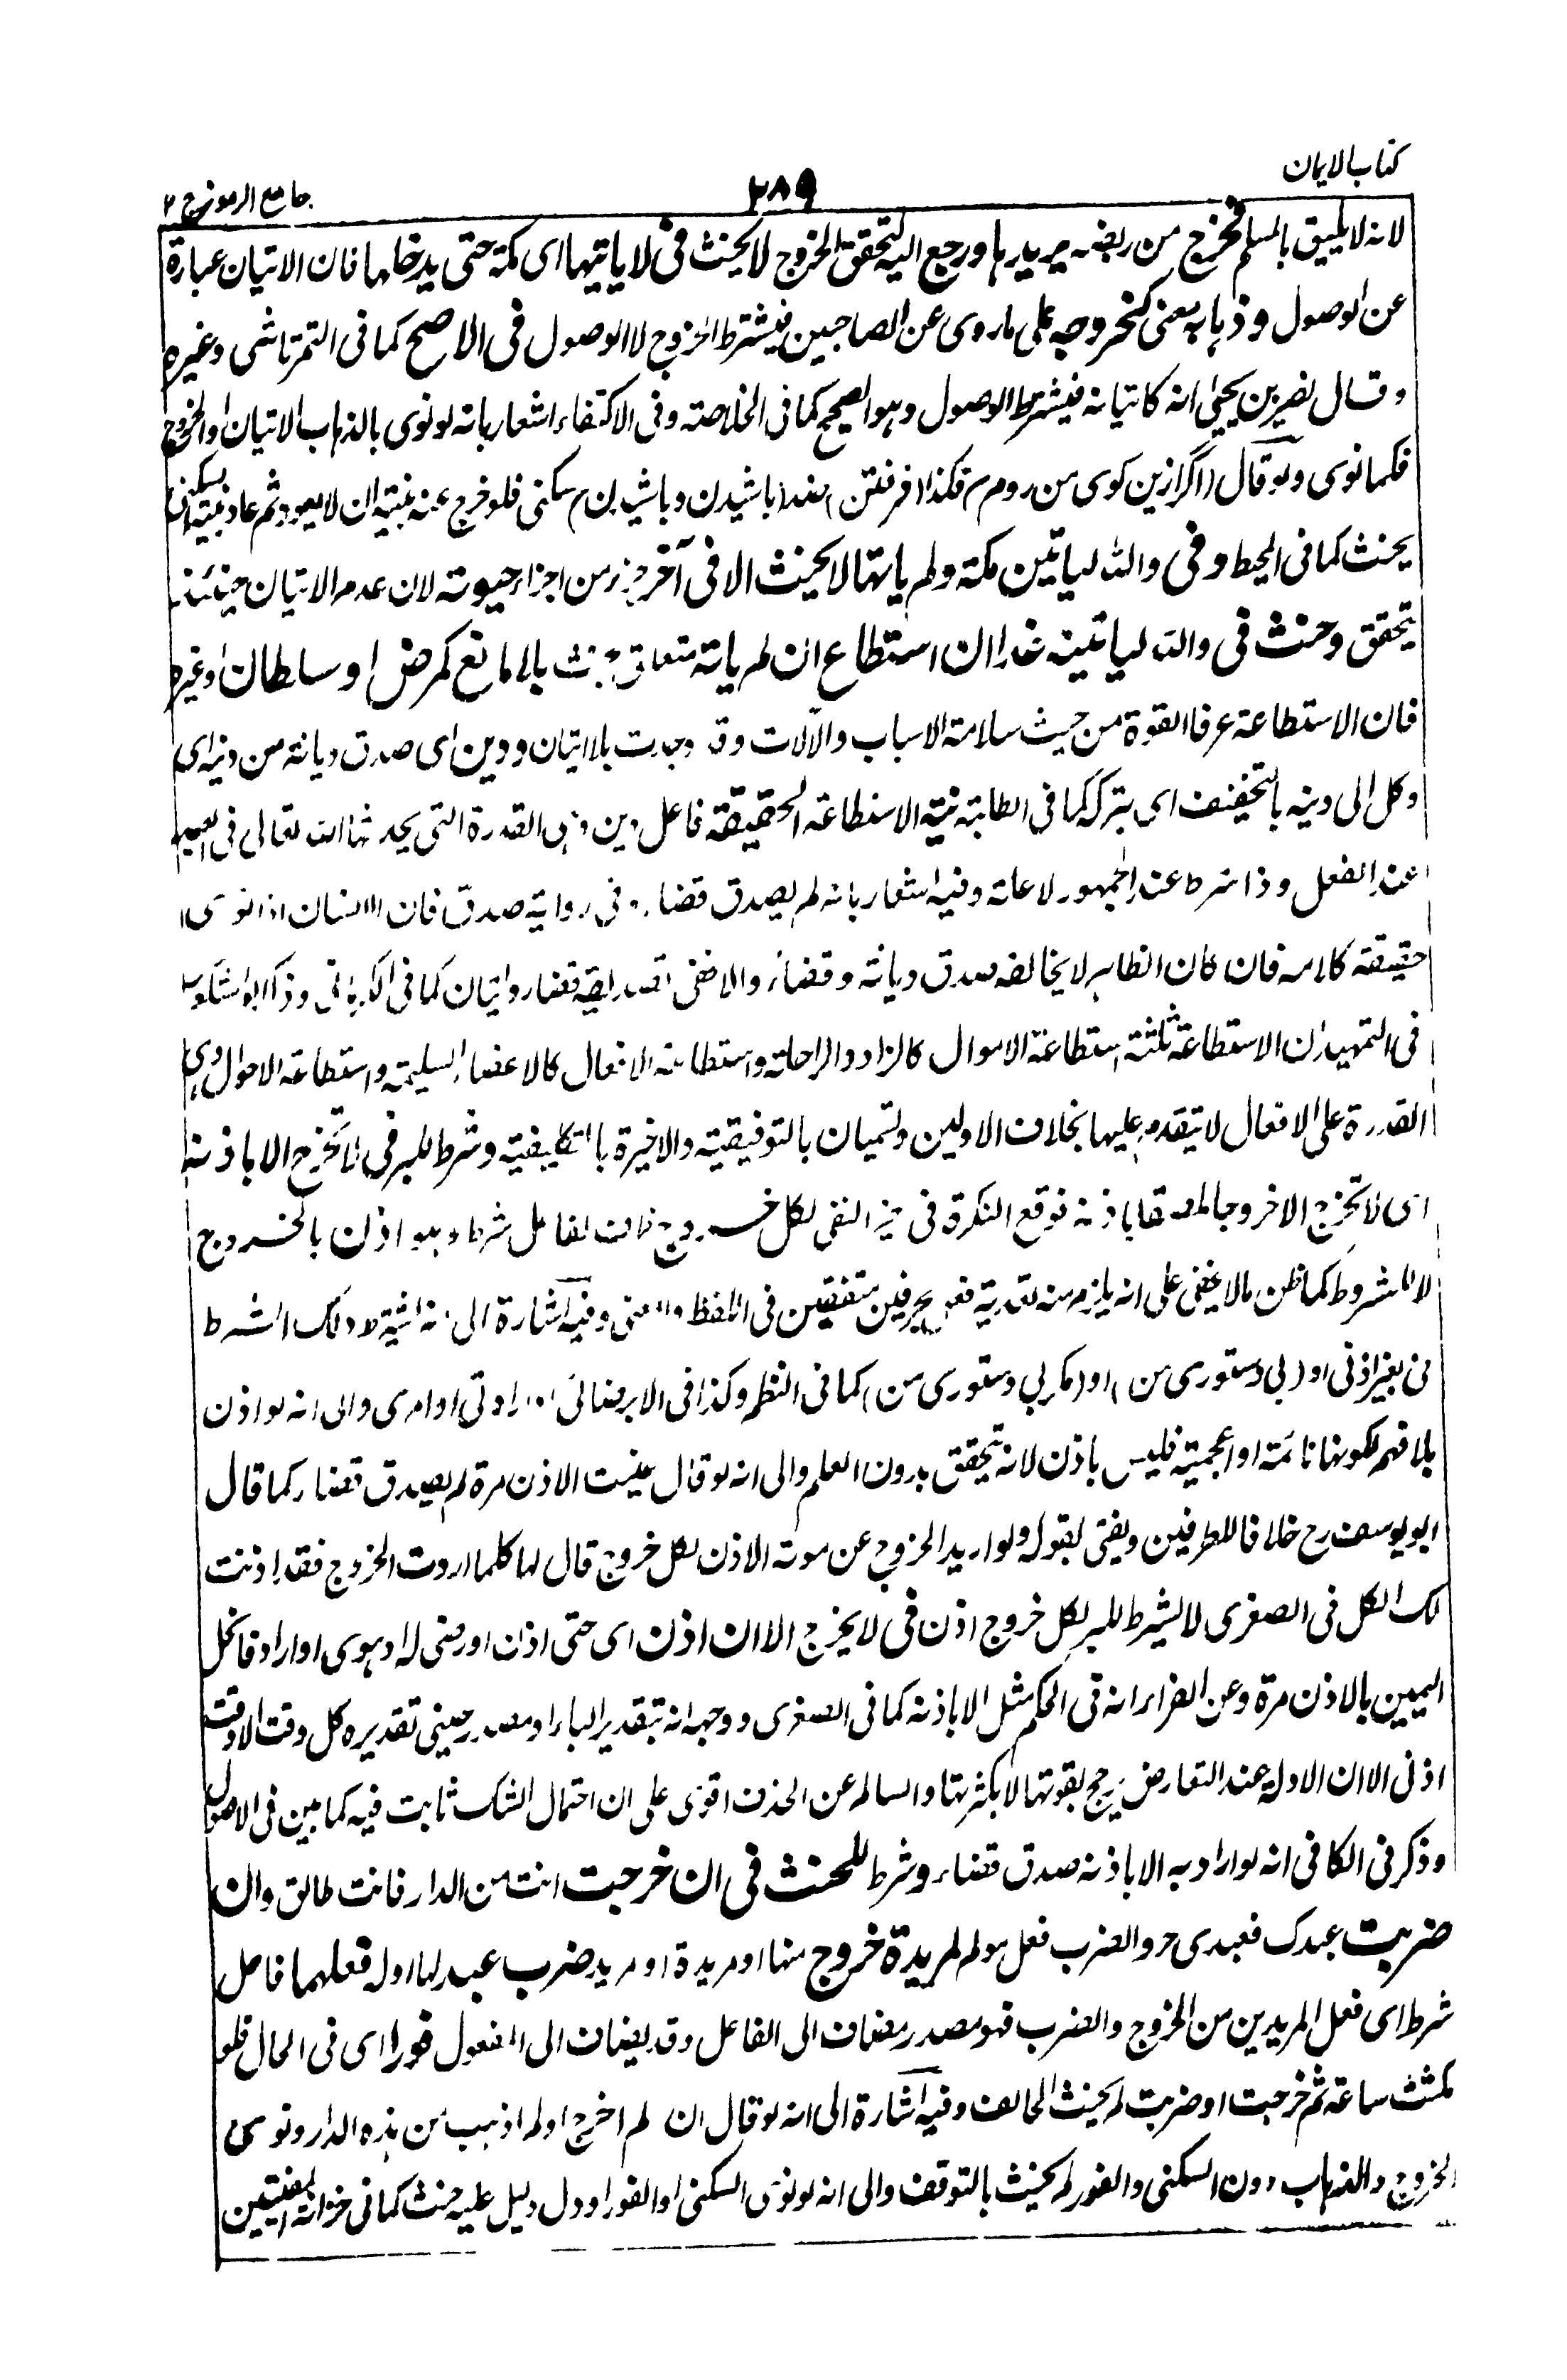 كتاب الايمان
٢٨٩
جامع الرموز ج ٢
لانه لا يليق بالمسلم فخرج من ربضه يريدها ورجع اليه لتحقق الخروج لا يحنث فى لا ياتيها اى مكة حتى يدخلها فان الاتيان عبارة
عن الوصول وذهابه يعنى كخروجه على ما روى عن الصاحبين فيشترط الخروج لا الوصول فى الاصح كما فى التمرتاشى وغيره
وقال نصير بن يحيى انه كاتيانه فيشترط الوصول وهو الصحيح كما فى الخلاصة وفى الاكتفاء اشعار بانه لو نوى بالذهاب الاتيان او الخروج
فكما نوى ولو قال (اگر ازين كوى من روم) فكذا (فرفتن) ضد (باشيدن وباشيدن) سكنى فلو خرج عنه بنية ان لا يعود ثم عاد بنية السكنى
يحنث كما فى المحيط وفى والله لياتين مكة ولم ياتها لا يحنث الا فى آخر جزء من اجزاء حيوته لان عدم الاتيان حينئذ
يتحقق وحنث فى والله لياتينه غدا ان استطاع ان لم ياته متعلق بحنث بلا مانع كمرض او سلطان او غيره
فان الاستطاعة عرفا القوة من حيث سلامة الاسباب والآلات وقد وجدت بلا اتيان ودين اى صدق ديانة من دينه اى
وكل الى دينه بالتخفيف اى بتركه كما فى الطلبة نية الاستطاعة الحقيقة فاعل دين وهى القدرة التى يحدثها الله تعالى فى العبد
عند الفعل وذا شرط عند الجمهور لا علة وفيه اشعار بانه لم يصدق قضاء وفى رواية صدق فان الانسان اذا نوى
حقيقة كلامه فان كان الظاهر لا يخالفه صدق ديانة وقضاء والا ففى تصديقه قضاء روايتان كما فى الكرمانى وذكر ابو الشكور
فى التمهيد ان الاستطاعة ثلثة استطاعة الاموال كالزاد والراحلة واستطاعة الافعال كالاعضاء السليمة واستطاعة الاحوال وهى
القدرة على الافعال لا يتقدم عليها بخلاف الاولين وتسميان بالتوفيقية والاخيرة بالتكليفية وشرط للبر فى لا تخرج الا باذنه
اى لا تخرج الا خروجا ملصقا باذنه فوقع النكرة فى حيز النفى لكل خروج فاعل شرط وهو اذن بالخروج
لا المشروط كما ظن مالا يخفى على انه يلزم منه تعدية فعل بحرفين متفقين فى اللفظ والمعنى وفيه اشارة الى انه الشرط
فى بغير اذنى او (بى دستورى من) او (مگر بى دستورى من) كما فى النظم وكذا فى الا برضائى او ارادتى او امرى والى انه لو اذن
بلا فهم لكونها نائمة او اعجمية فليس باذن لانه يتحقق بدون العلم والى انه لو قال عنيت الاذن مرة لم يصدق قضاء كما قال
ابو يوسف رح خلافا للطرفين ويفتى بقوله ولو اريد الخروج عن مونة الاذن لكل خروج قال لها كلما اردت الخروج فقد اذنت
لك الكل فى الصغرى لا يشترط للبر لكل خروج اذن فى لا يخرج الا ان اذن اى حتى اذن او رضى له او هوى او اراد فانحل
اليمين بالاذن مرة وعن الفراء انه فى الحكم مثل الا باذنه كما فى الصغرى ووجهه انه بتقدير الباء او مصدر حينى تقديره كل وقت الا وقت
اذنى الا ان الادلة عند التعارض يرجح بقوتها لا بكثرتها والسالم عن الحذف اقوى على ان احتمال الشك ثابت فيه كما بين فى الاصول
وذكر فى الكافى انه لو اراد به الا باذنه صدق قضاء وشرط للحنث فى ان خرجت انت من الدار فانت طالق وان
ضربت عبدك فعبدى حر والضرب فعل مولم لمريدة خروج منها او مريدة او مريد ضرب عبد لها او له فعلهما فاعل
شرط اى فعل المريدين من الخروج والضرب فهو مصدر مضاف الى الفاعل وقد يضاف الى المفعول فورا اى فى الحال فلو
مكثت ساعة ثم خرجت او ضربت لم يحنث الحالف وفيه اشارة الى انه لو قال ان لم اخرج او لم اذهب من هذه الدار ونوى
الخروج والذهاب دون السكنى والفور لم يحنث بالتوقف والى انه لو نوى السكنى او الفور او دل دليل عليه حنث كما فى خزانة المفتيين